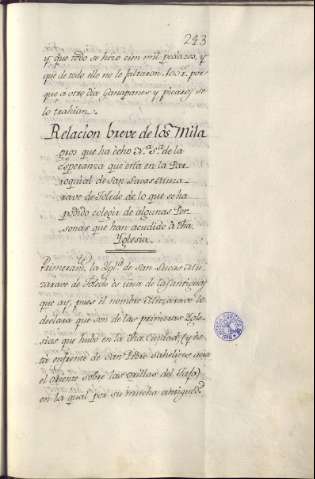 243
y que todo se hizo cien mil pedazos, y
que de todo ello no le faltaron. 100 r. por
que a otro dia, Ganapanes y picaros se
lo trahian.
Relacion breve de los Mila
gros que ha echo N.ª S.ª de la
Esperanza que esta en la Par
roquial de San Lucas Muza
rave de Toledo de lo que se ha
podido colegir de algunas Per
sonas que han acudido a dha
Yglesia.
Primeram.te la Ygl.ª de San Lucas Mu
zarave de Toledo es una de las antiguas
que ay, pues el nombre Muzarave lo
declara que son de las primeras Ygle
sias que hubo en la dha Ciudad, y es
tá enfrente de San Pedro
el oriente sobre las orillas del Tajo
en la qual por su mucha antigued.d